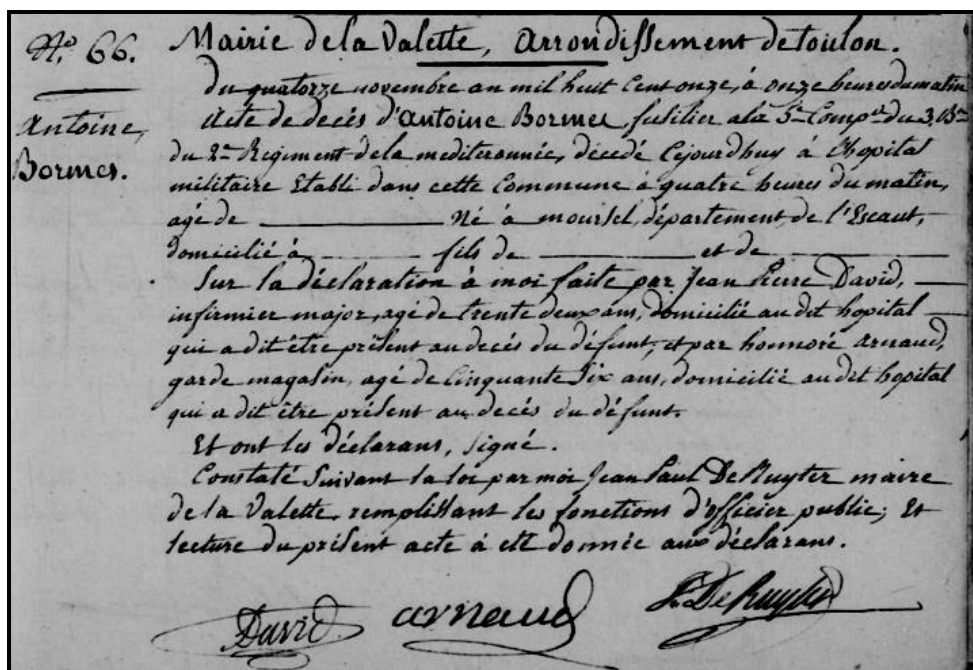 N.° 66.
Antoine,
Bormes.
Mairie de la Valette, Arrondissement de toulon.
Du quatorze novembre an mil huit Cent onze, à onze heures du matin
Acte de decés d'Antoine Bormes, fusilier a la 5.e Comp.ie du 3.e B.on
du 2.e Regiment de la mediterannée, decedé Cejourdhuy à l'hopital
militaire Etabli dans cette Commune à quatre heures du matin,
agé de Né à moursel, département de l'Escaut,
domicilié à fils de et de
Sur la déclaration à moi faite par Jean Pierre David,
infirmier major, agé de trente deux ans, domicilié au dit hopital
qui a dit être présent au decés du défunt, et par honnoré Arnaud,
garde magasin, agé de Cinquante Six ans, domicilié au dit hopital
qui a dit être présent au decés du défunt.
Et ont les déclarans, signé.
Constaté Suivant la loi par moi Jean Paul De Ruyter maire
de la Valette, remplissant les fonctions d'officier public; Et
lecture du présent acte à eté donnée aux déclarans.
David arnaud De Ruyter